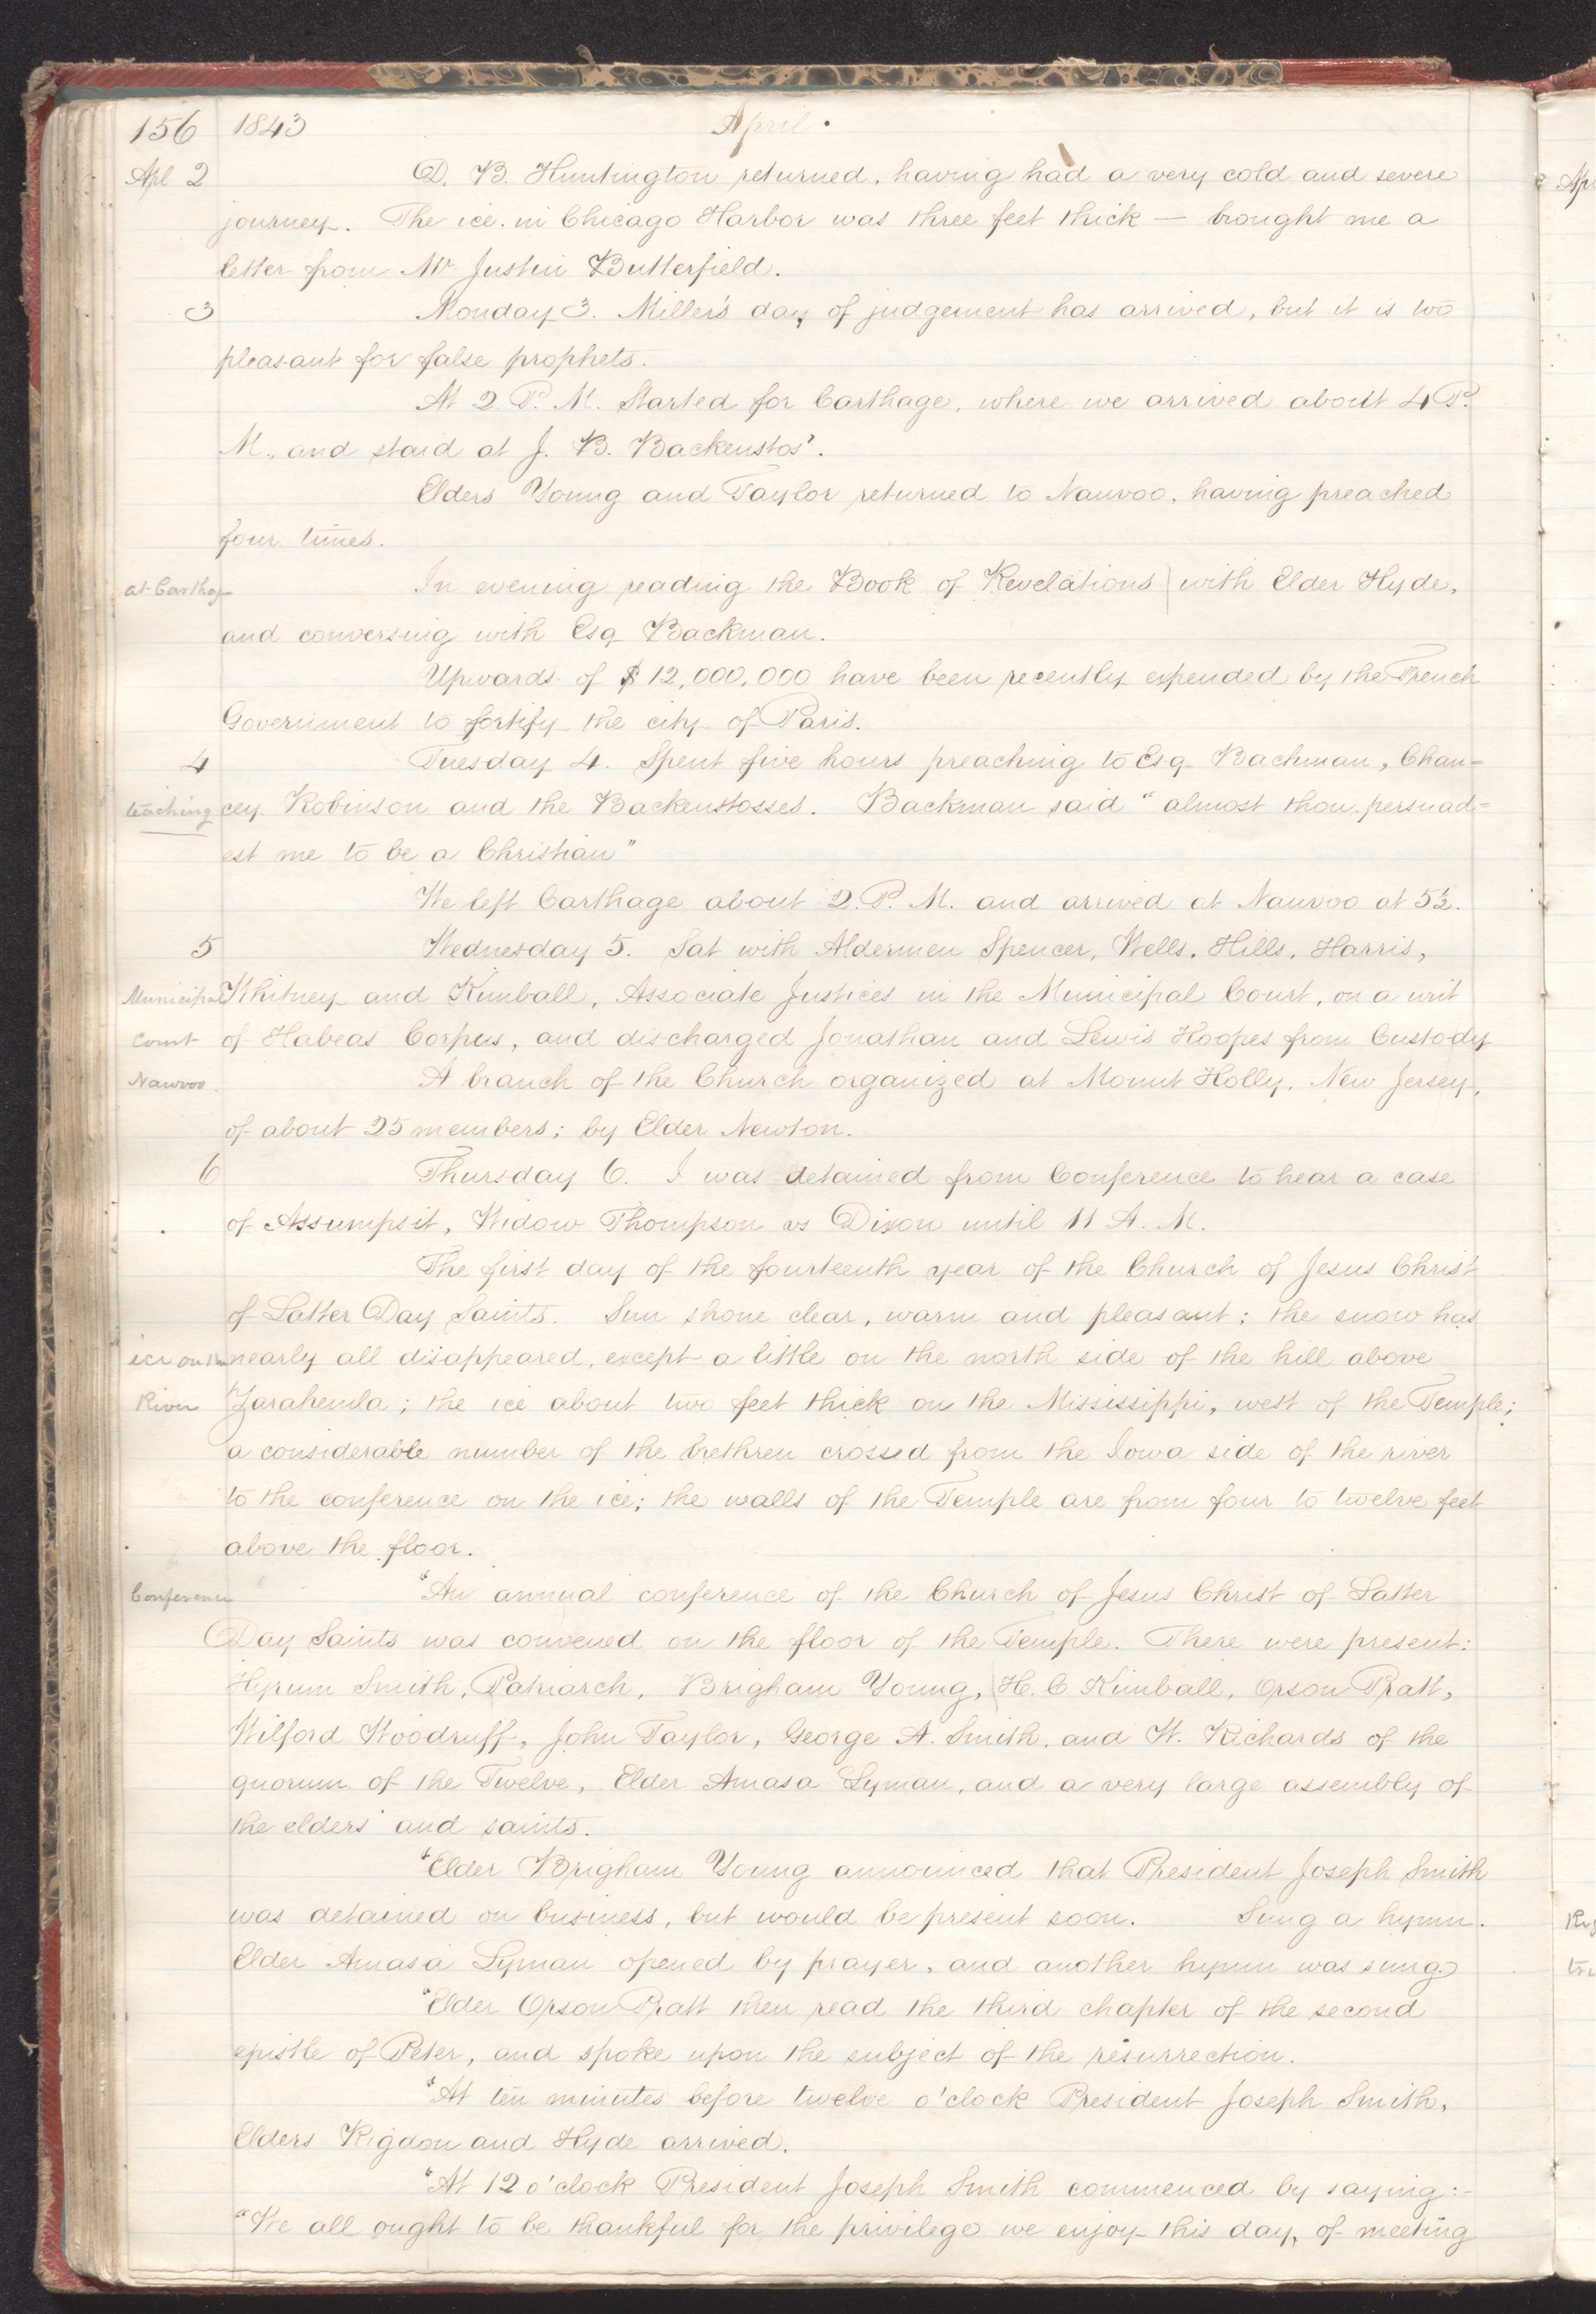 156 1843 April.
Apl 2 D. B. Huntington returned, having had a very cold and severe
journey. The ice in Chicago Harbor was three feet thick — brought me a
letter from Mr Justin Butterfield.
3 Monday 3. Miller's day of judgement has arrived, but it is too
pleasant for false prophets.
At 2 P. M. Started for Carthage, where we arrived about 4 P.
M., and staid at J. B. Backenstos'.
Elders Young and Taylor returned to Nauvoo, having preached
four times.
at Carthage In evening reading the Book of Revelations with Elder Hyde,
and conversing with Esq Backman.
Upwards of $12,000,000 have been recently expended by the French
Government to fortify the city of Paris.
4 Tuesday 4. Spent five hours preaching to Esq Backman, Chan=
teaching cey Robinson and the Backenstosses. Backman said "almost thou persuad=
est me to be a Christian"
We left Carthage about 2. P. M. and arrived at Nauvoo at 5½.
5 Wednesday 5. Sat with Aldermen Spencer, Wells, Hills, Harris,
Municipal Whitney and Kimball, Associate Justices in the Municipal Court, on a writ
Court of Habeas Corpus, and discharged Jonathan and Lewis Hoopes from Custody
Nauvoo. A branch of the Church organized at Mount Holly, New Jersey,
of about 25 members; by Elder Newton.
6 Thursday 6. I was detained from Conference to hear a case
of Assumpsit, Widow Thompson vs Dixon until 11 A. M.
The first day of the fourteenth year of the Church of Jesus Christ
of Latter Day Saints. Sun shone clear, warm and pleasant; the snow has
ice on the nearly all disappeared, except a little on the north side of the hill above
River Zarahemla; the ice about two feet thick on the Mississippi, west of the Temple;
a considerable number of the brethren crossed from the Iowa side of the river
to the conference on the ice; the walls of the Temple are from four to twelve feet
above the floor.
Conference "An annual conference of the Church of Jesus Christ of Latter
Day Saints was convened on the floor of the Temple. There were present:
Hyrum Smith, Patriarch, Brigham Young, H. C Kimball, Orson Pratt,
Wilford Woodruff, John Taylor, George A. Smith, and W. Richards of the
quorum of the Twelve, Elder Amasa Lyman, and a very large assembly of
the elders and saints.
"Elder Brigham Young announced that President Joseph Smith
was detained on business, but would be present soon. Sung a hymn.
Elder Amasa Lyman opened by prayer, and another hymn was sung
"Elder Orson Pratt then read the third chapter of the second
epistle of Peter, and spoke upon the subject of the resurrection.
"At ten minutes before twelve o'clock President Joseph Smith,
Elders Rigdon and Hyde arrived.
"At 12 o'clock President Joseph Smith commenced by saying:-
"We all ought to be thankful for the privilege we enjoy this day, of meeting